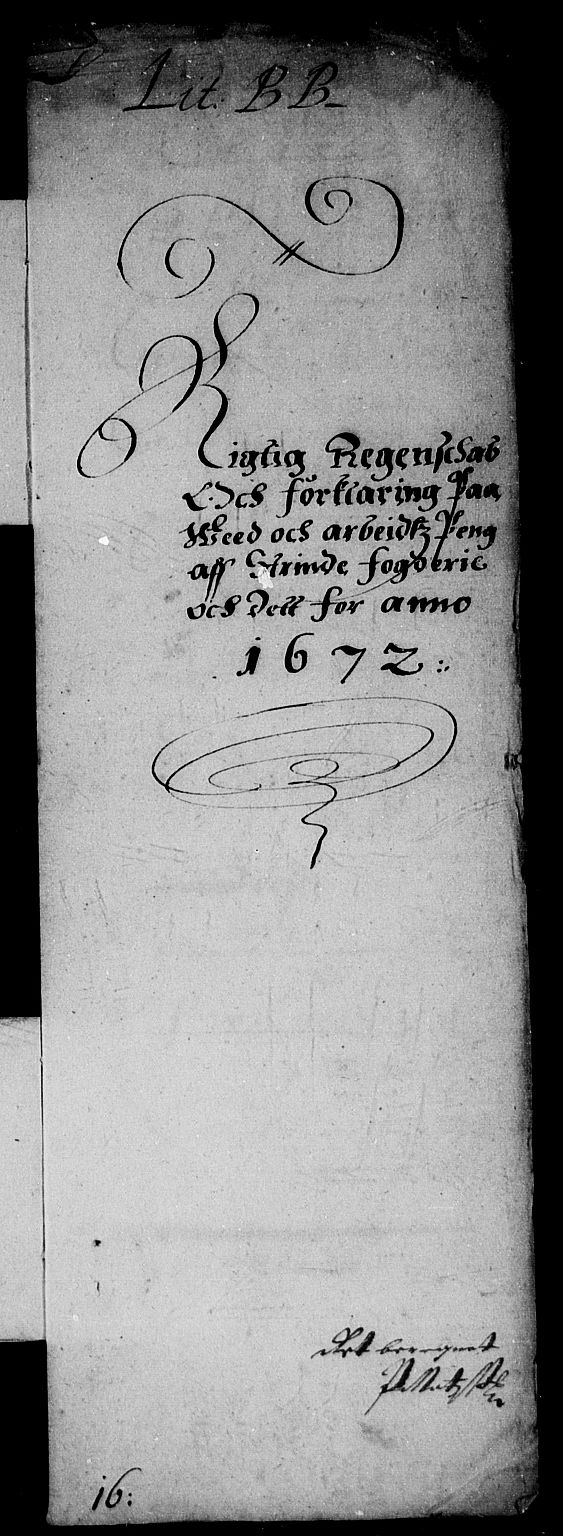 Lit. BB
Rigtig Regenschab
Och forklaring Paa
Weed och arbeidtz Peng
aff Strinde fogderie
och Dett for anno
1672:
Ret beregnet
16: